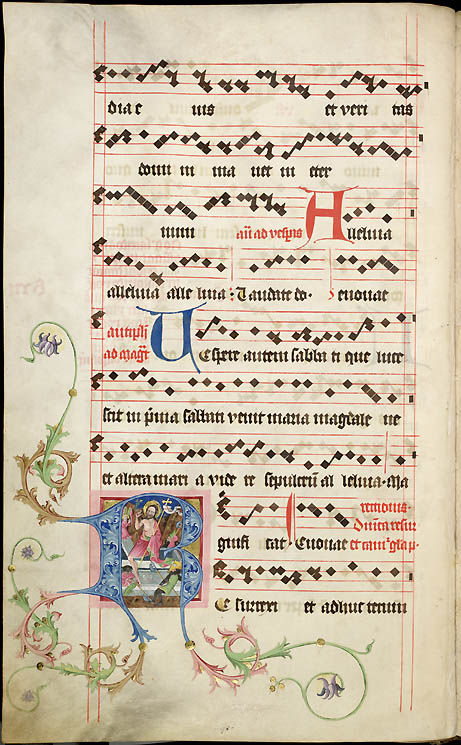 dia e ius et veri tas
domi ni ma net in eter
num an ad vesperis Alleluia
alleluia alle luia : Laudate do . Evouae
Vespere autem sabba ti que luce
scit in prima sabbati venit maria magdale ne
et altera mari a vide re sepulcrum al leluia . Ma
gnifi cat . Evouae
Resurrexi et adhuc tecum